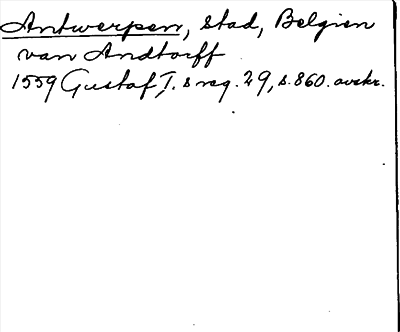 Antwerpen, stad, Belgien
van Andtorff
1559 Gustaf I:s reg. 29, s. 860. avskr.